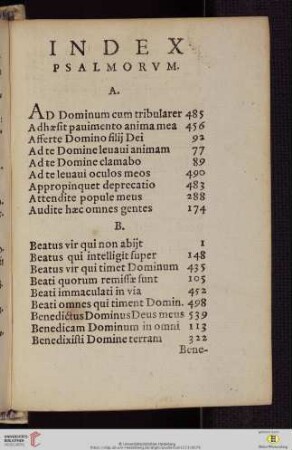 INDEX
PSALMORVM.
A.
AD Dominum cum tribularer 485
Adhæsit pauimento anima mea 456
Afferte Domino filij Dei 92
Ad te Domine leuaui animam 77
Ad te Domine clamabo 89
Ad te leuaui oculos meos 490
Appropinquet deprecatio 483
Attendite popule meus 288
Audite hæc omnes gentes 174
B.
Beatus vir qui non abijt 1
Beatus qui intelligit super 148
Beatus vir qui timet Dominum 435
Beati quorum remissæ sunt 105
Beati immaculati in via 452
Beati omnes qui timent Domin. 498
Benedictus Dominus Deus meus 539
Benedicam Dominum in omni 113
Benedixisti Domine terram 322
Bene-
UNIVERSITÄTS-
BIBLIOTHEK
HEIDELBERG
© Universitätsbibliothek Heidelberg